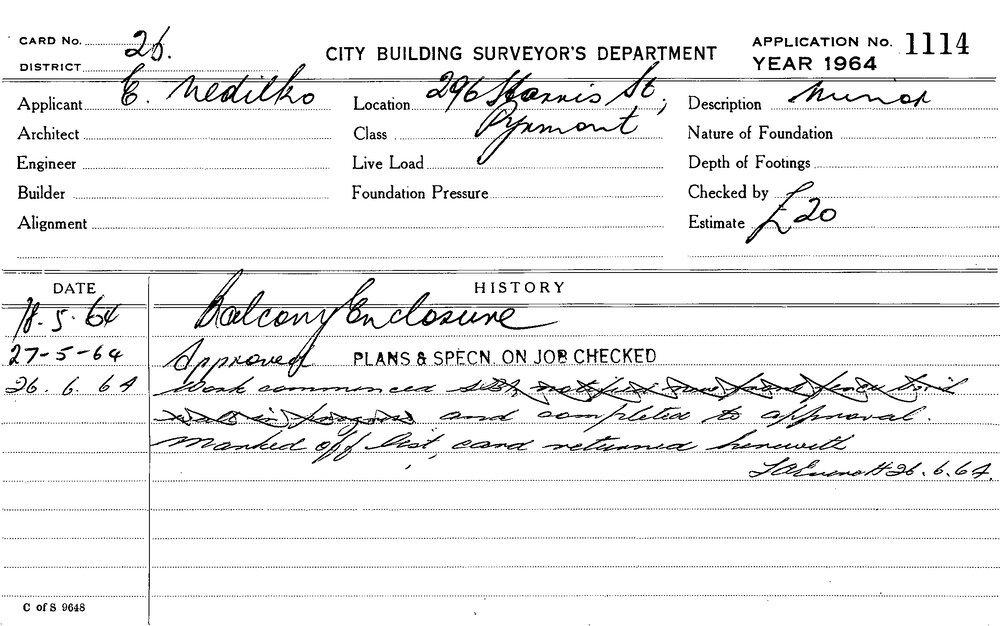 CARD No. 26.
CITY BUILDING SURVEYOR'S DEPARTMENT
APPLICATION No. 1114
DISTRICT
YEAR 1964
Applicant E. Nedilko
Location 296 Harris St,
Description Minor
Architect
Class Pyrmont
Nature of Foundation
Engineer
Live Load
Depth of Footings
Builder
Foundation Pressure
Checked by
Alignment
Estimate £20
DATE
HISTORY
18.5.64 Balcony Enclosure
27-5-64 Approved PLANS & SPECN. ON JOB CHECKED
26.6.64 Work commenced
and completed to approval.
Marked off list, card returned herewith
26.6.64.
C of S 9648